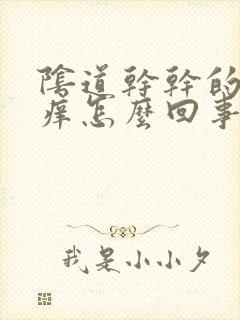 陰道幹幹的
痒怎麼回事
我是小小夕